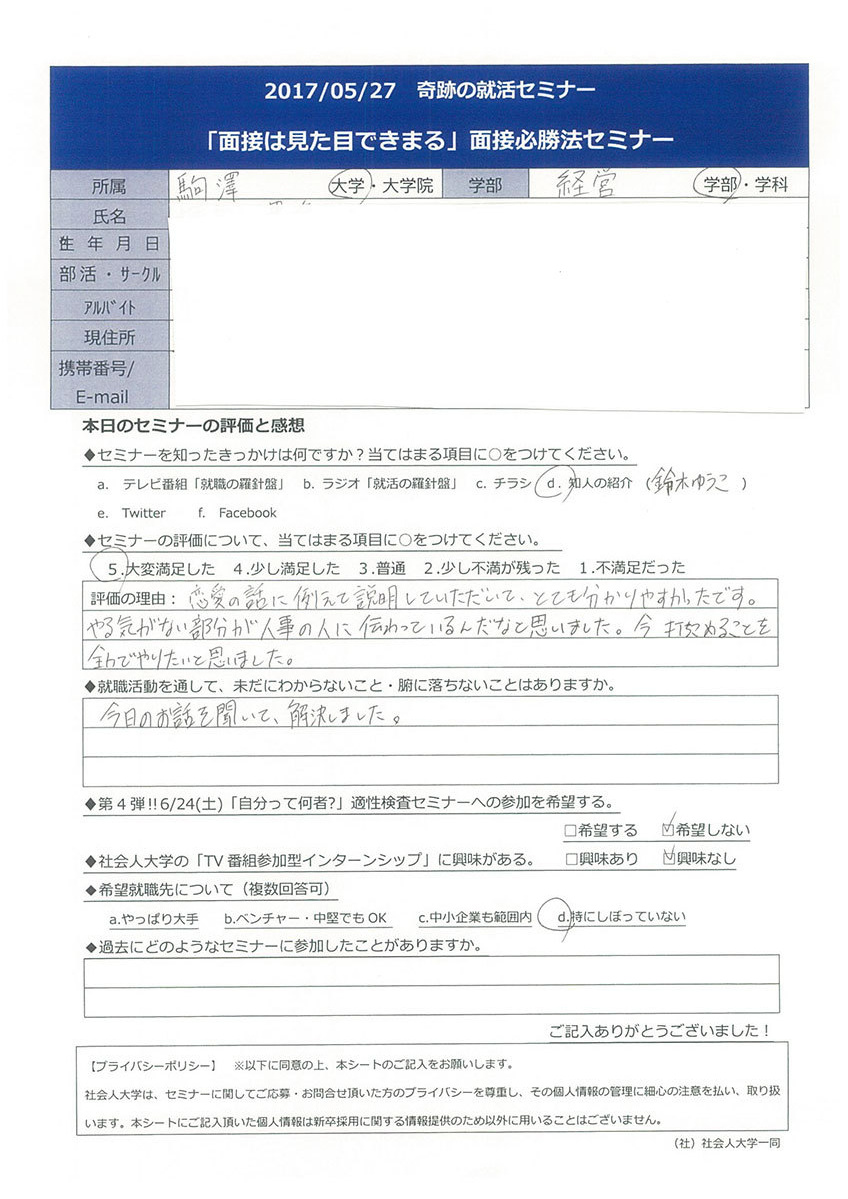 2017/05/27　奇跡の就活セミナー
「面接は見た目できまる」面接必勝法セミナー
所属 駒澤 大学・大学院 学部 経営 学部・学科
氏名
生年月日
部活・サークル
アルバイト
現住所
携帯番号/
E-mail
本日のセミナーの評価と感想
◆セミナーを知ったきっかけは何ですか？当てはまる項目に○をつけてください。
a. テレビ番組「就職の羅針盤」 b. ラジオ「就活の羅針盤」 c. チラシ d. 知人の紹介（鈴木ゆうこ）
e. Twitter f. Facebook
◆セミナーの評価について、当てはまる項目に○をつけてください。
5.大変満足した 4.少し満足した 3.普通 2.少し不満が残った 1.不満足だった
評価の理由：恋愛の話に例えて説明していただいて、とても分かりやすかったです。
やる気がない部分が人事の人に伝わっているんだなと思いました。今 打ちこめることを
全力でやりたいと思いました。
◆就職活動を通して、未だにわからないこと・腑に落ちないことはありますか。
今日のお話を聞いて、解決しました。
◆第４弾!!6/24(土)「自分って何者?」適性検査セミナーへの参加を希望する。
□希望する ☑希望しない
◆社会人大学の「TV番組参加型インターンシップ」に興味がある。 □興味あり ☑興味なし
◆希望就職先について（複数回答可）
a.やっぱり大手 b.ベンチャー・中堅でもOK c.中小企業も範囲内 d.特にしぼっていない
◆過去にどのようなセミナーに参加したことがありますか。
ご記入ありがとうございました！
【プライバシーポリシー】 ※以下に同意の上、本シートのご記入をお願いします。
社会人大学は、セミナーに関してご応募・お問合せ頂いた方のプライバシーを尊重し、その個人情報の管理に細心の注意を払い、取り扱
います。本シートにご記入頂いた個人情報は新卒採用に関する情報提供のため以外に用いることはございません。
（社）社会人大学一同